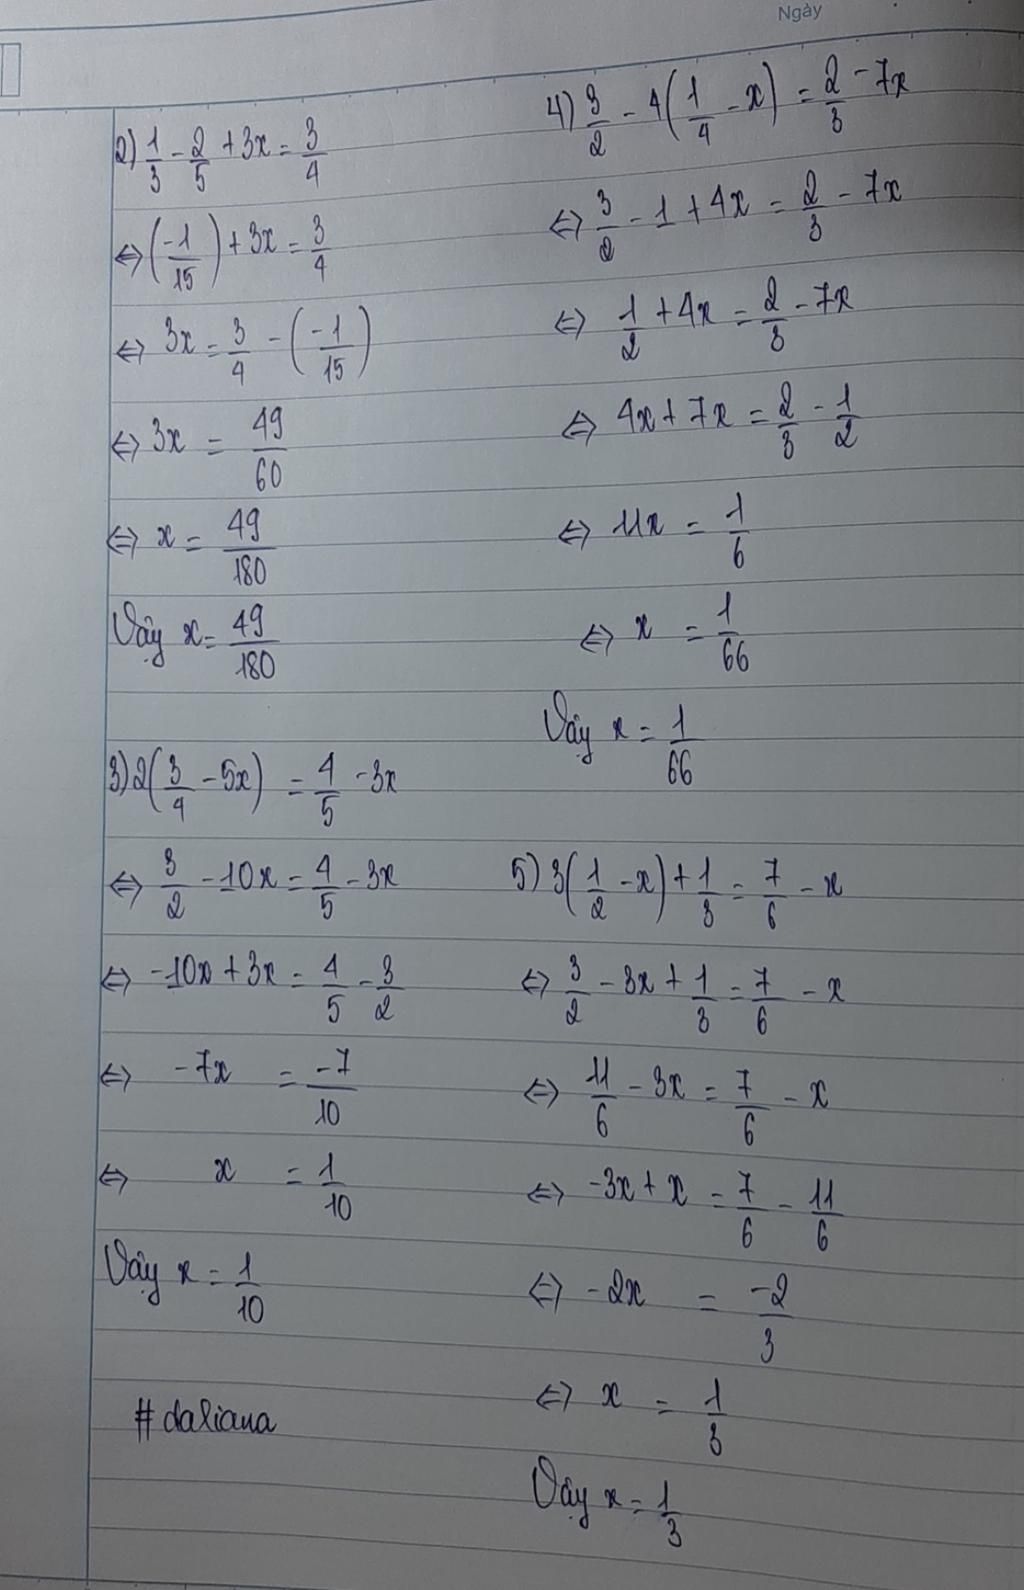 Ngày
2) 1/3 - 2/5 + 3x = 3/4
⇔ (-1/15) + 3x = 3/4
⇔ 3x = 3/4 - (-1/15)
⇔ 3x = 49/60
⇔ x = 49/180
Vậy x = 49/180
3) 2(3/4 - 5x) = 4/5 - 3x
⇔ 3/2 - 10x = 4/5 - 3x
⇔ -10x + 3x = 4/5 - 3/2
⇔ -7x = -7/10
⇔ x = 1/10
Vậy x = 1/10
# daliana
4) 3/2 - 4(1/4 - x) = 2/3 - 7x
⇔ 3/2 - 1 + 4x = 2/3 - 7x
⇔ 1/2 + 4x = 2/3 - 7x
⇔ 4x + 7x = 2/3 - 1/2
⇔ 11x = 1/6
⇔ x = 1/66
Vậy x = 1/66
5) 3(1/2 - x) + 1/3 = 7/6 - x
⇔ 3/2 - 3x + 1/3 = 7/6 - x
⇔ 11/6 - 3x = 7/6 - x
⇔ -3x + x = 7/6 - 11/6
⇔ -2x = -2/3
⇔ x = 1/3
Vậy x = 1/3